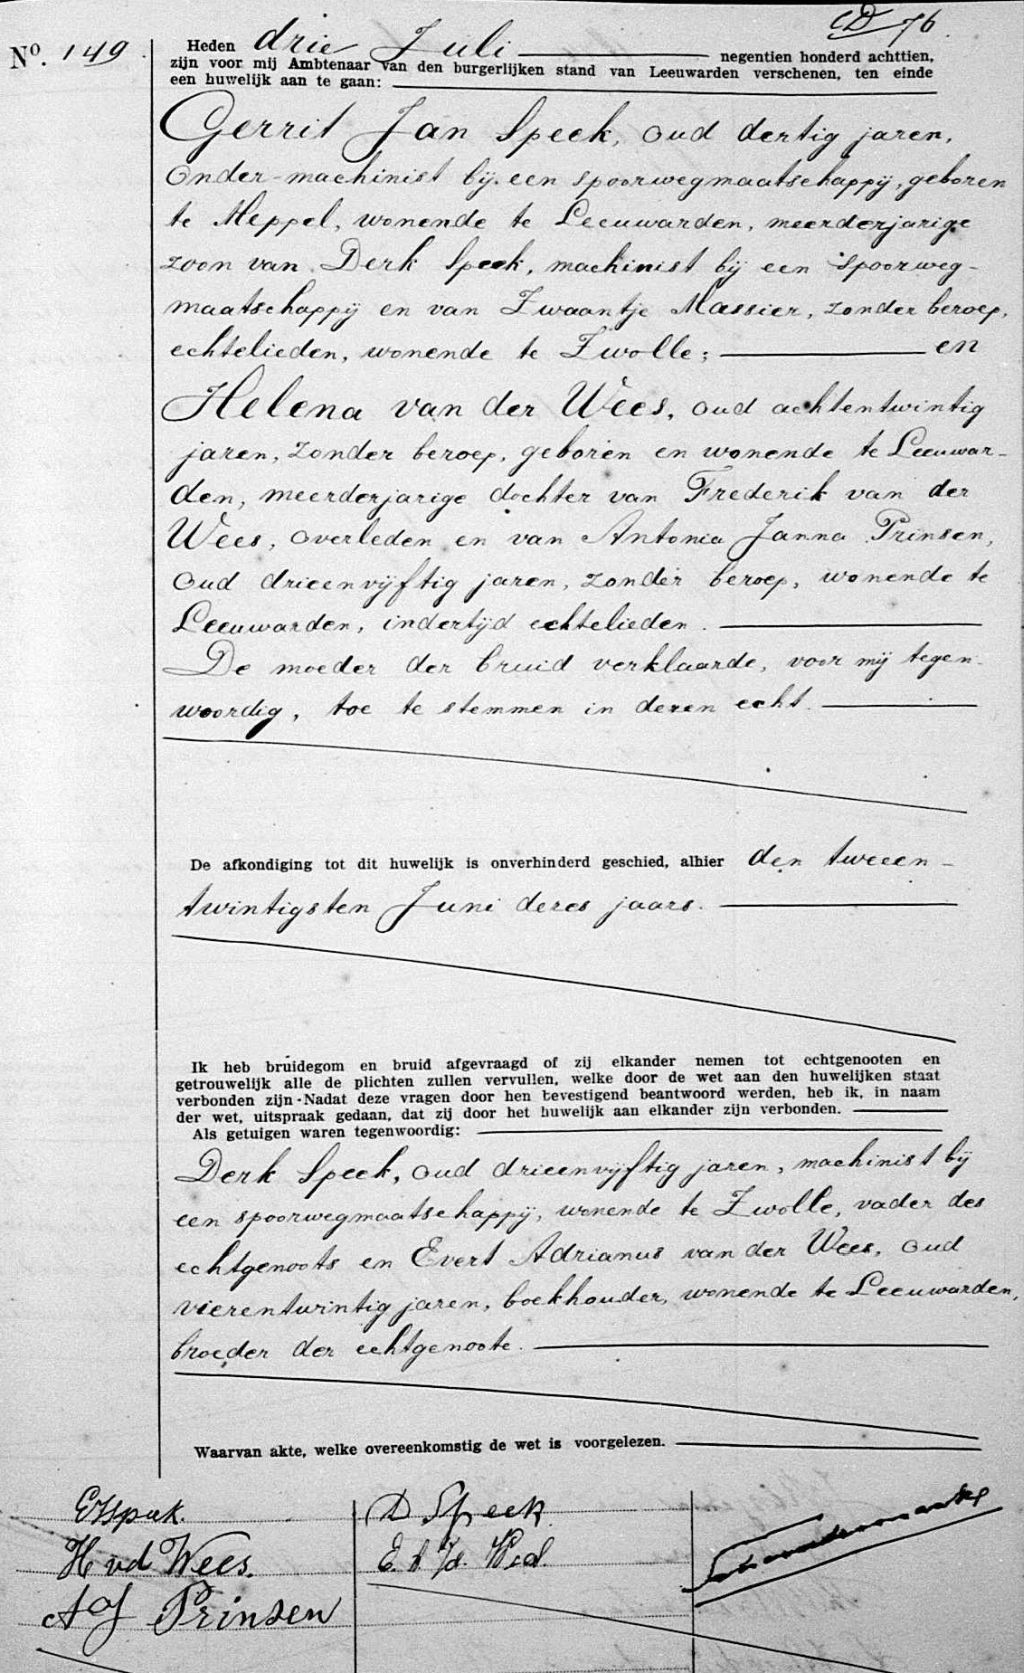 CD 76.
No. 149.
Heden drie Juli negentien honderd achttien,
zijn voor mij Ambtenaar van den burgerlijken stand van Leeuwarden verschenen, ten einde
een huwelijk aan te gaan:
Gerrit Jan Speek, oud dertig jaren,
onder-machinist bij een spoorwegmaatschappij, geboren
te Meppel, wonende te Leeuwarden, meerderjarige
zoon van Derk Speek, machinist bij een spoorweg-
maatschappij en van Zwaantje Massier, zonder beroep,
echtelieden, wonende te Zwolle; en
Helena van der Wees, oud achtentwintig
jaren, zonder beroep, geboren en wonende te Leeuwar-
den, meerderjarige dochter van Frederik van der
Wees, overleden en van Antonia Janna Prinsen,
oud drieenvijftig jaren, zonder beroep, wonende te
Leeuwarden, indertijd echtelieden.
De moeder der bruid verklaarde, voor mij tegen-
woordig, toe te stemmen in dezen echt.
De afkondiging tot dit huwelijk is onverhinderd geschied, alhier den tweeen-
twintigsten Juni dezes jaars.
Ik heb bruidegom en bruid afgevraagd of zij elkander nemen tot echtgenooten en
getrouwelijk alle de plichten zullen vervullen, welke door de wet aan den huwelijken staat
verbonden zijn. Nadat deze vragen door hen bevestigend beantwoord werden, heb ik, in naam
der wet, uitspraak gedaan, dat zij door het huwelijk aan elkander zijn verbonden.
Als getuigen waren tegenwoordig:
Derk Speek, oud drieenvijftig jaren, machinist bij
een spoorwegmaatschappij, wonende te Zwolle, vader des
echtgenoots en Evert Adrianus van der Wees, oud
vierentwintig jaren, boekhouder, wonende te Leeuwarden,
broeder der echtgenoote.
Waarvan akte, welke overeenkomstig de wet is voorgelezen.
D Speek
H vd Wees.
A J Prinsen